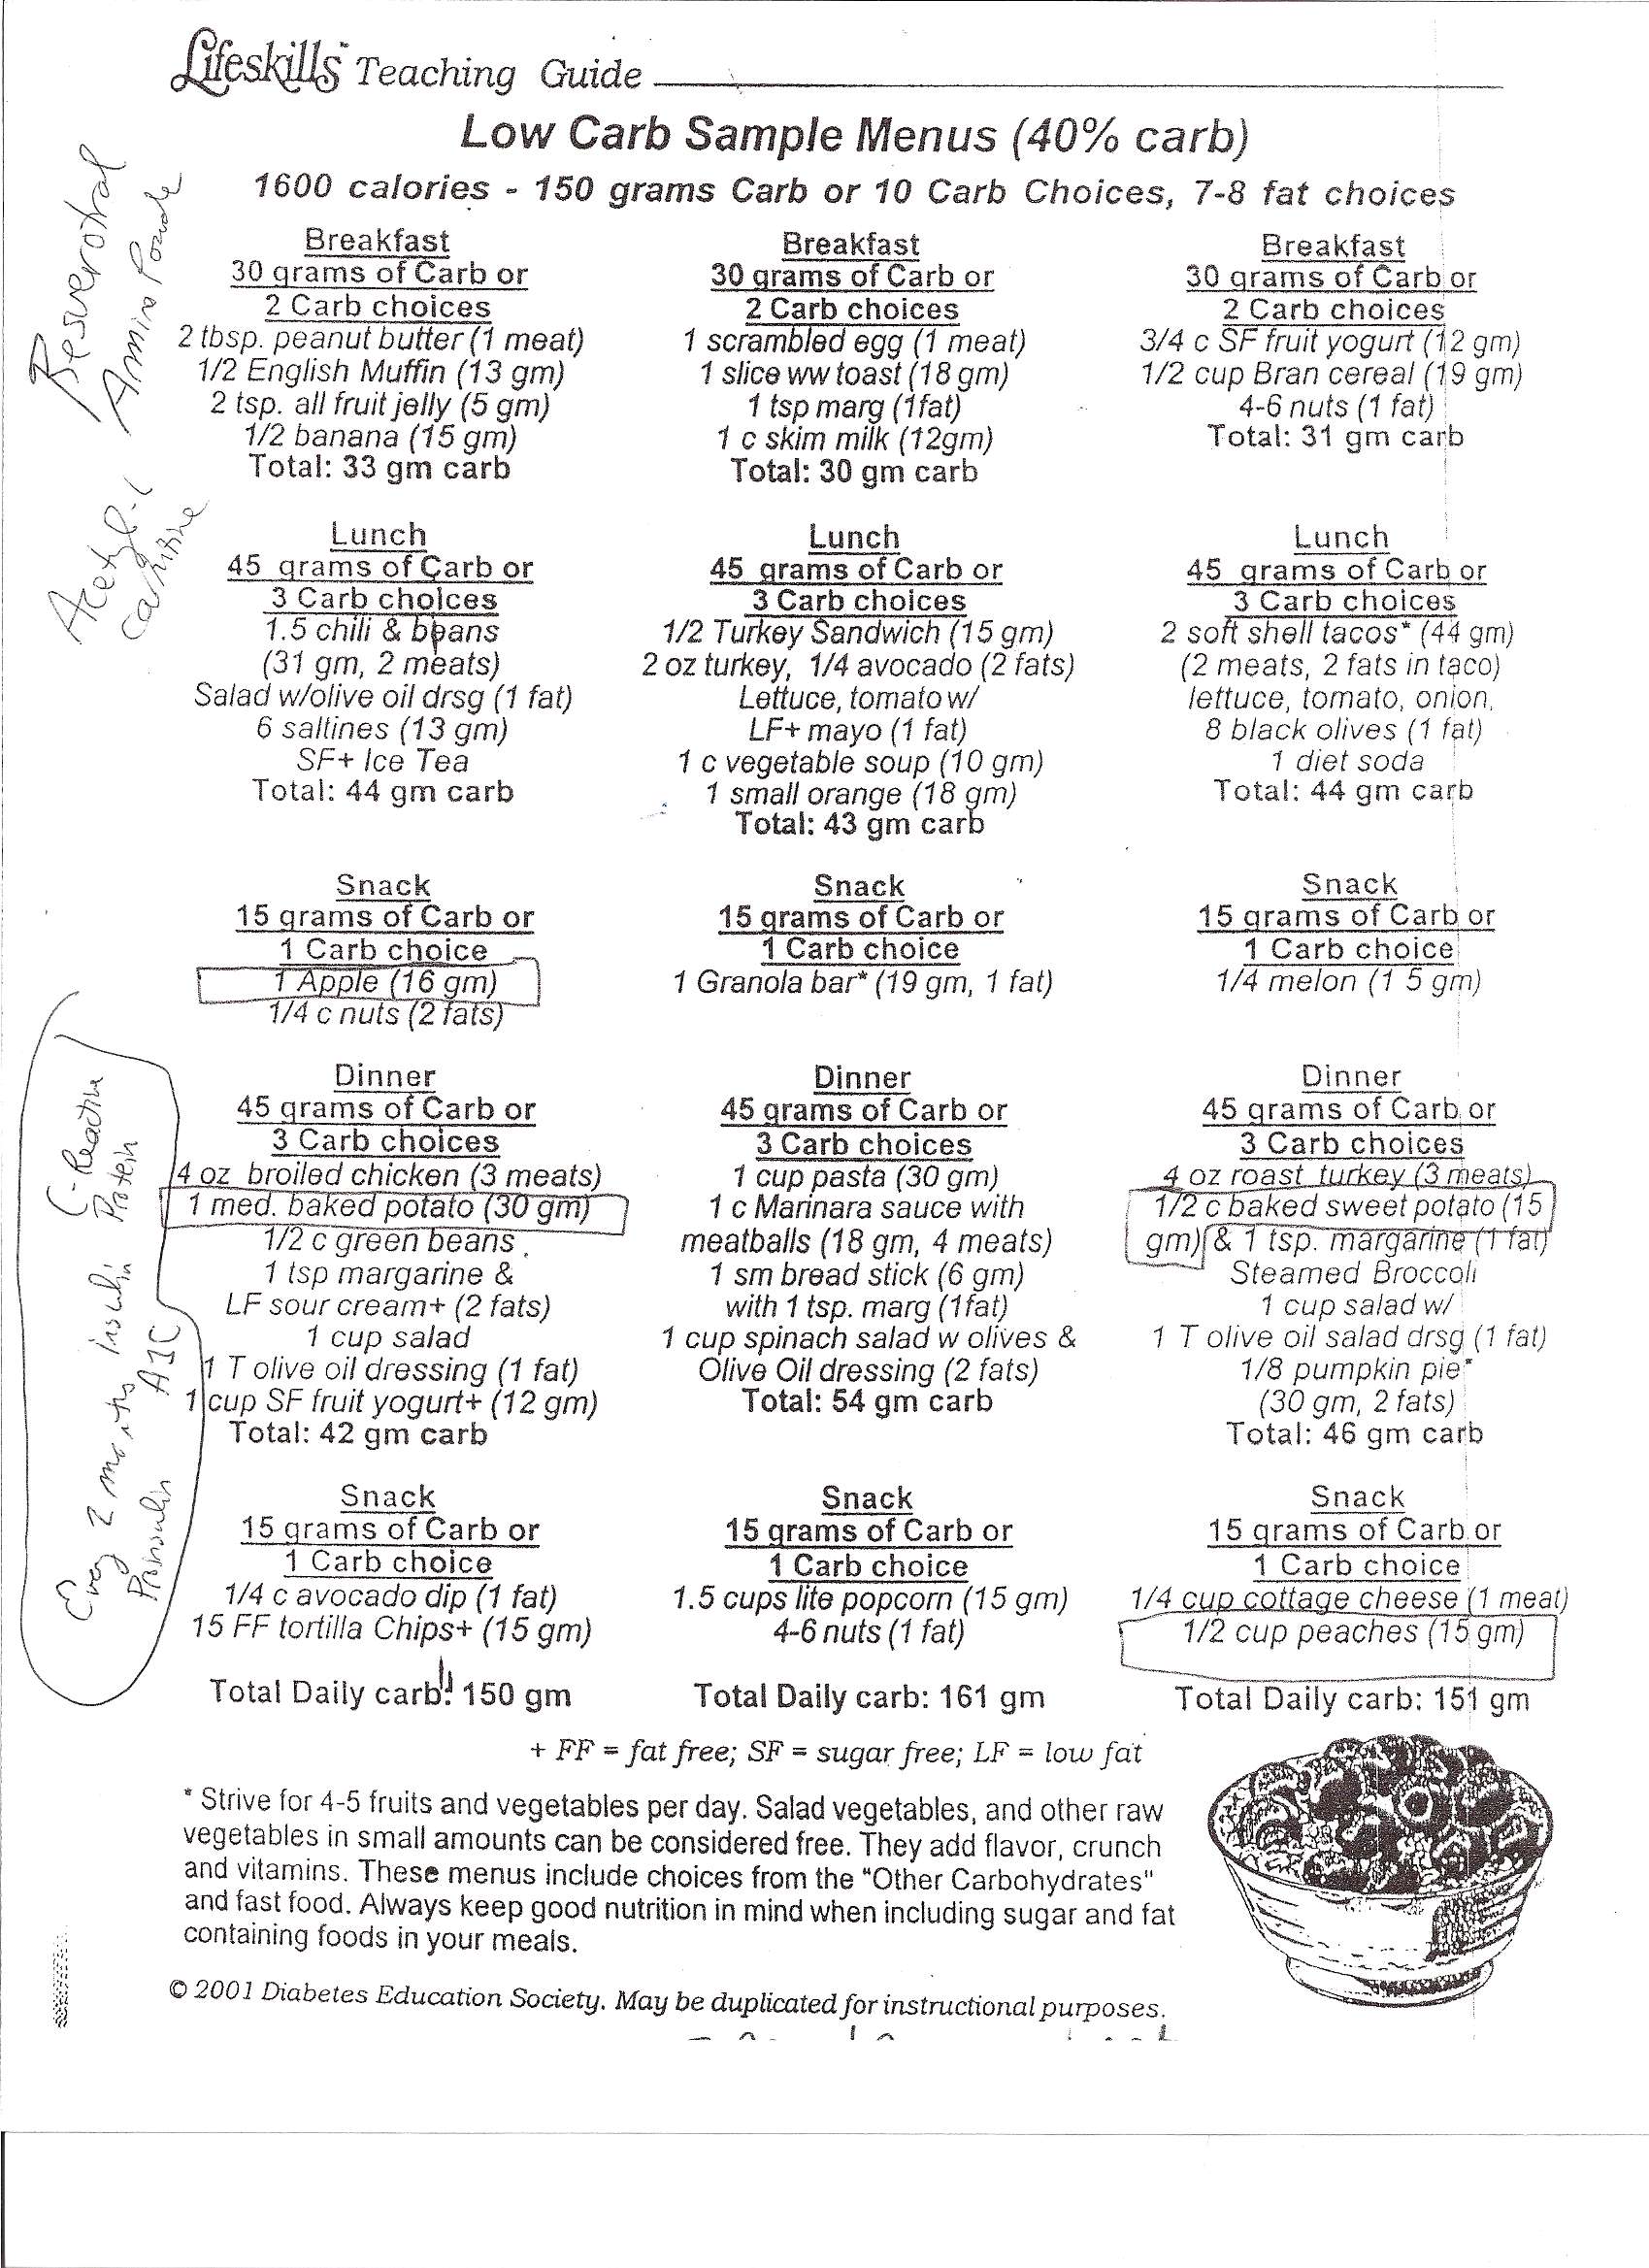 Lifeskills™ Teaching Guide
Low Carb Sample Menus (40% carb)
1600 calories - 150 grams Carb or 10 Carb Choices, 7-8 fat choices
Breakfast
30 grams of Carb or
2 Carb choices
2 tbsp. peanut butter (1 meat)
1/2 English Muffin (13 gm)
2 tsp. all fruit jelly (5 gm)
1/2 banana (15 gm)
Total: 33 gm carb
Lunch
45 grams of Carb or
3 Carb choices
1.5 chili & beans
(31 gm, 2 meats)
Salad w/olive oil drsg (1 fat)
6 saltines (13 gm)
SF+ Ice Tea
Total: 44 gm carb
Snack
15 grams of Carb or
1 Carb choice
1 Apple (16 gm)
1/4 c nuts (2 fats)
Dinner
45 grams of Carb or
3 Carb choices
4 oz broiled chicken (3 meats)
1 med. baked potato (30 gm)
1/2 c green beans
1 tsp margarine &
LF sour cream+ (2 fats)
1 cup salad
1 T olive oil dressing (1 fat)
1 cup SF fruit yogurt+ (12 gm)
Total: 42 gm carb
Snack
15 grams of Carb or
1 Carb choice
1/4 c avocado dip (1 fat)
15 FF tortilla Chips+ (15 gm)
Total Daily carb: 150 gm
Breakfast
30 grams of Carb or
2 Carb choices
1 scrambled egg (1 meat)
1 slice ww toast (18 gm)
1 tsp marg (1fat)
1 c skim milk (12gm)
Total: 30 gm carb
Lunch
45 grams of Carb or
3 Carb choices
1/2 Turkey Sandwich (15 gm)
2 oz turkey, 1/4 avocado (2 fats)
Lettuce, tomato w/
LF+ mayo (1 fat)
1 c vegetable soup (10 gm)
1 small orange (18 gm)
Total: 43 gm carb
Snack
15 grams of Carb or
1 Carb choice
1 Granola bar* (19 gm, 1 fat)
Dinner
45 grams of Carb or
3 Carb choices
1 cup pasta (30 gm)
1 c Marinara sauce with
meatballs (18 gm, 4 meats)
1 sm bread stick (6 gm)
with 1 tsp. marg (1fat)
1 cup spinach salad w olives &
Olive Oil dressing (2 fats)
Total: 54 gm carb
Snack
15 grams of Carb or
1 Carb choice
1.5 cups lite popcorn (15 gm)
4-6 nuts (1 fat)
Total Daily carb: 161 gm
Breakfast
30 grams of Carb or
2 Carb choices
3/4 c SF fruit yogurt (12 gm)
1/2 cup Bran cereal (19 gm)
4-6 nuts (1 fat)
Total: 31 gm carb
Lunch
45 grams of Carb or
3 Carb choices
2 soft shell tacos* (44 gm)
(2 meats, 2 fats in taco)
lettuce, tomato, onion,
8 black olives (1 fat)
1 diet soda
Total: 44 gm carb
Snack
15 grams of Carb or
1 Carb choice
1/4 melon (1 5 gm)
Dinner
45 grams of Carb or
3 Carb choices
4 oz roast turkey (3 meats)
1/2 c baked sweet potato (15
gm) & 1 tsp. margarine (1 fat)
Steamed Broccoli
1 cup salad w/
1 T olive oil salad drsg (1 fat)
1/8 pumpkin pie*
(30 gm, 2 fats)
Total: 46 gm carb
Snack
15 grams of Carb or
1 Carb choice
1/4 cup cottage cheese (1 meat)
1/2 cup peaches (15 gm)
Total Daily carb: 151 gm
+ FF = fat free; SF = sugar free; LF = low fat
* Strive for 4-5 fruits and vegetables per day. Salad vegetables, and other raw
vegetables in small amounts can be considered free. They add flavor, crunch
and vitamins. These menus include choices from the "Other Carbohydrates"
and fast food. Always keep good nutrition in mind when including sugar and fat
containing foods in your meals.
© 2001 Diabetes Education Society. May be duplicated for instructional purposes.
Resverotral
Amino
Acetyl-l
carnitine
C-Reactive
Protein
Every 2 months Insulin
Proinsulin A1C